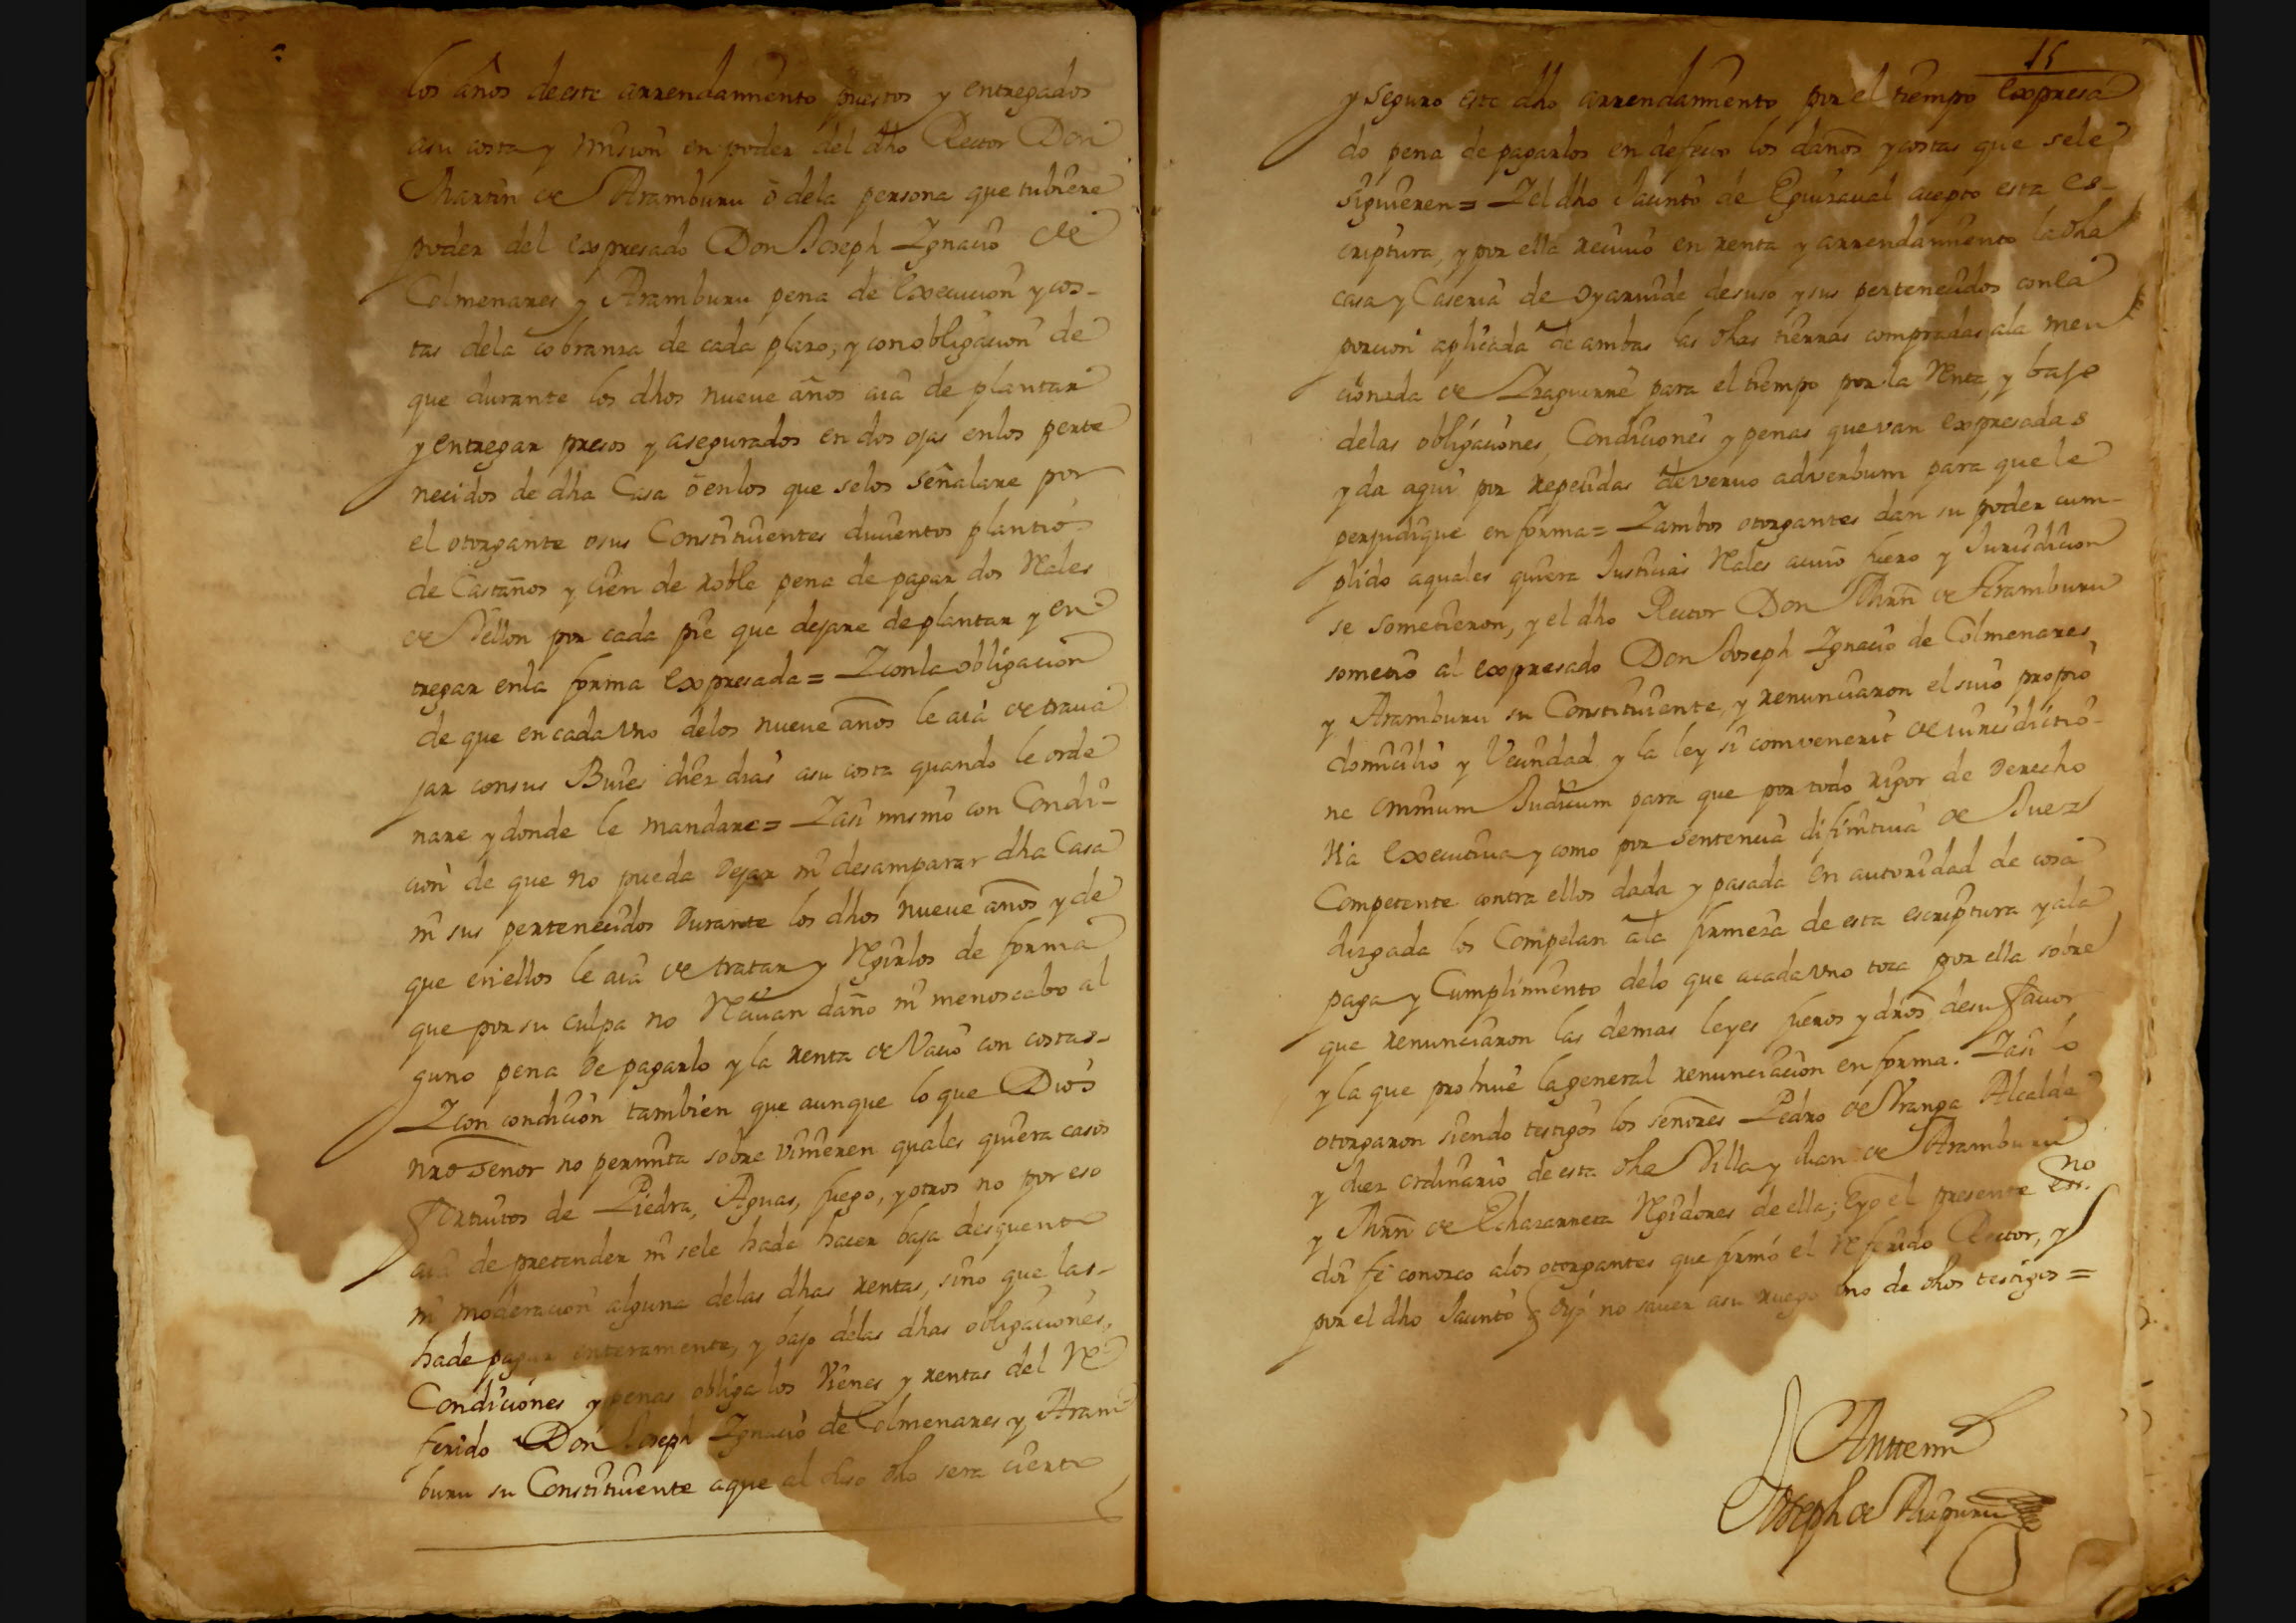 los años deeste arrendamiento puestos y entregados
asu costa y mision en poder del dho Rector Don
Martin de Aramburu ó dela persona que tubiere
poder del expresado Don Joseph Ignacio de
Colmenares y Aramburu pena de execucion y cos-
tas dela cobranza de cada plazo; y con obligacion de
que durante los dhos nueve años aia de plantar
y entregar presos y asegurados en dos ojas enlos perte
necidos de dha Casa ó enlos que selos señalare por
el otorgante osus Constituientes ducientos plantio-
de Castaños y Cien de roble pena de pagar dos Rales
de Vellon por cada pie que dejare de plantar y en-
tregar enla forma expresada = Y con la obligacion
de que en cada vno delos nueve años le aia de traua
jar consus Buies diez dias asu costa quando le orde
nare y donde le mandare = Y asi mismo con Condi-
cion de que no pueda Dejar ni desamparar dha Casa
ni sus pertenecidos Durante los dhos nueve años y de
que en ellos le aia de tratar y Regirlos de forma
que por su culpa no Reciuan daño ni menoscabo al
guno pena de pagarlo y la renta de Vacio con costas-
Y con condicion tambien que aunque lo que Dios
nro Señor no permita sobre vinieren quales quiera casos
fortuitos de Piedra, Aguas, fuego, y otros no por eso
aia de pretender ni sele hade hacer baja desquento
ni moderacion alguna delas dhas rentas, sino que las-
hade pagar enteramente, y bajo delas dhas obligaciones,
Condiciones y penas obliga los Vienes y rentas del Re
ferido Don Joseph Ignacio de Colmenares y Aram
buru su Constituiente aque al dho sera cierto
15
y seguro este dho arrendamiento por el tiempo expresa
do pena de pagarlos en defecto los daños y costas que sele
siguieren = Y el dho Jacinto de Eguizaual acepto esta es-
criptura, y por ella reciuio en renta y arrendamiento la dha
casa y Caseria de Oyaruide desuso y sus pertenecidos conla
porcion aplicada de ambas las dhas tierras compradas ala men
cionada de Yraguirre para el tiempo por la Renta, y bajo
delas obligaciones, Condiciones y penas que van expresadas
y da aqui por repetidas deveruo adverbum para que le
perjudique en forma = Y ambos otorgantes dan su poder cum-
plido aquales quiera Justicias Rales acuio fuero y Jurisdicion
se sometieron, y el dho Rector Don Mrn de Aramburu
sometio al expresado Don Joseph Ignacio de Colmenares
y Aramburu su Constituiente, y renunciaron el suio propio
domicilio y Vecindad y la ley si comvenerit de iurisdictio-
ne omnium Judicum para que por todo rigor de Derecho
Via executiua y como por sentencia difinitiua de Juez
Competente contra ellos dada y pasada en autoridad de cosa
Juzgada los Compelan ala firmeza de esta escriptura y ala
paga y Cumplimiento delo que acada vno toca por ella sobre
que renunciaron las demas leyes fueros y dros desu fauor
y la que prohiue la general renunciacion en forma. Y asi lo
otorgaron siendo testigos los señores Pedro de Aranga Alcalde
y Juez ordinario de esta dha Villa y Juan de Aramburu
y Mrn de Echazarreta Regidores de ella; E yo el presente essno
doi fe conozco alos otorgantes que firmó el referido Rector, y
por el dho Jacinto q dijo no sauer asu ruego vno de dhos testigos =
Anttemi
Joseph de Aizpuru